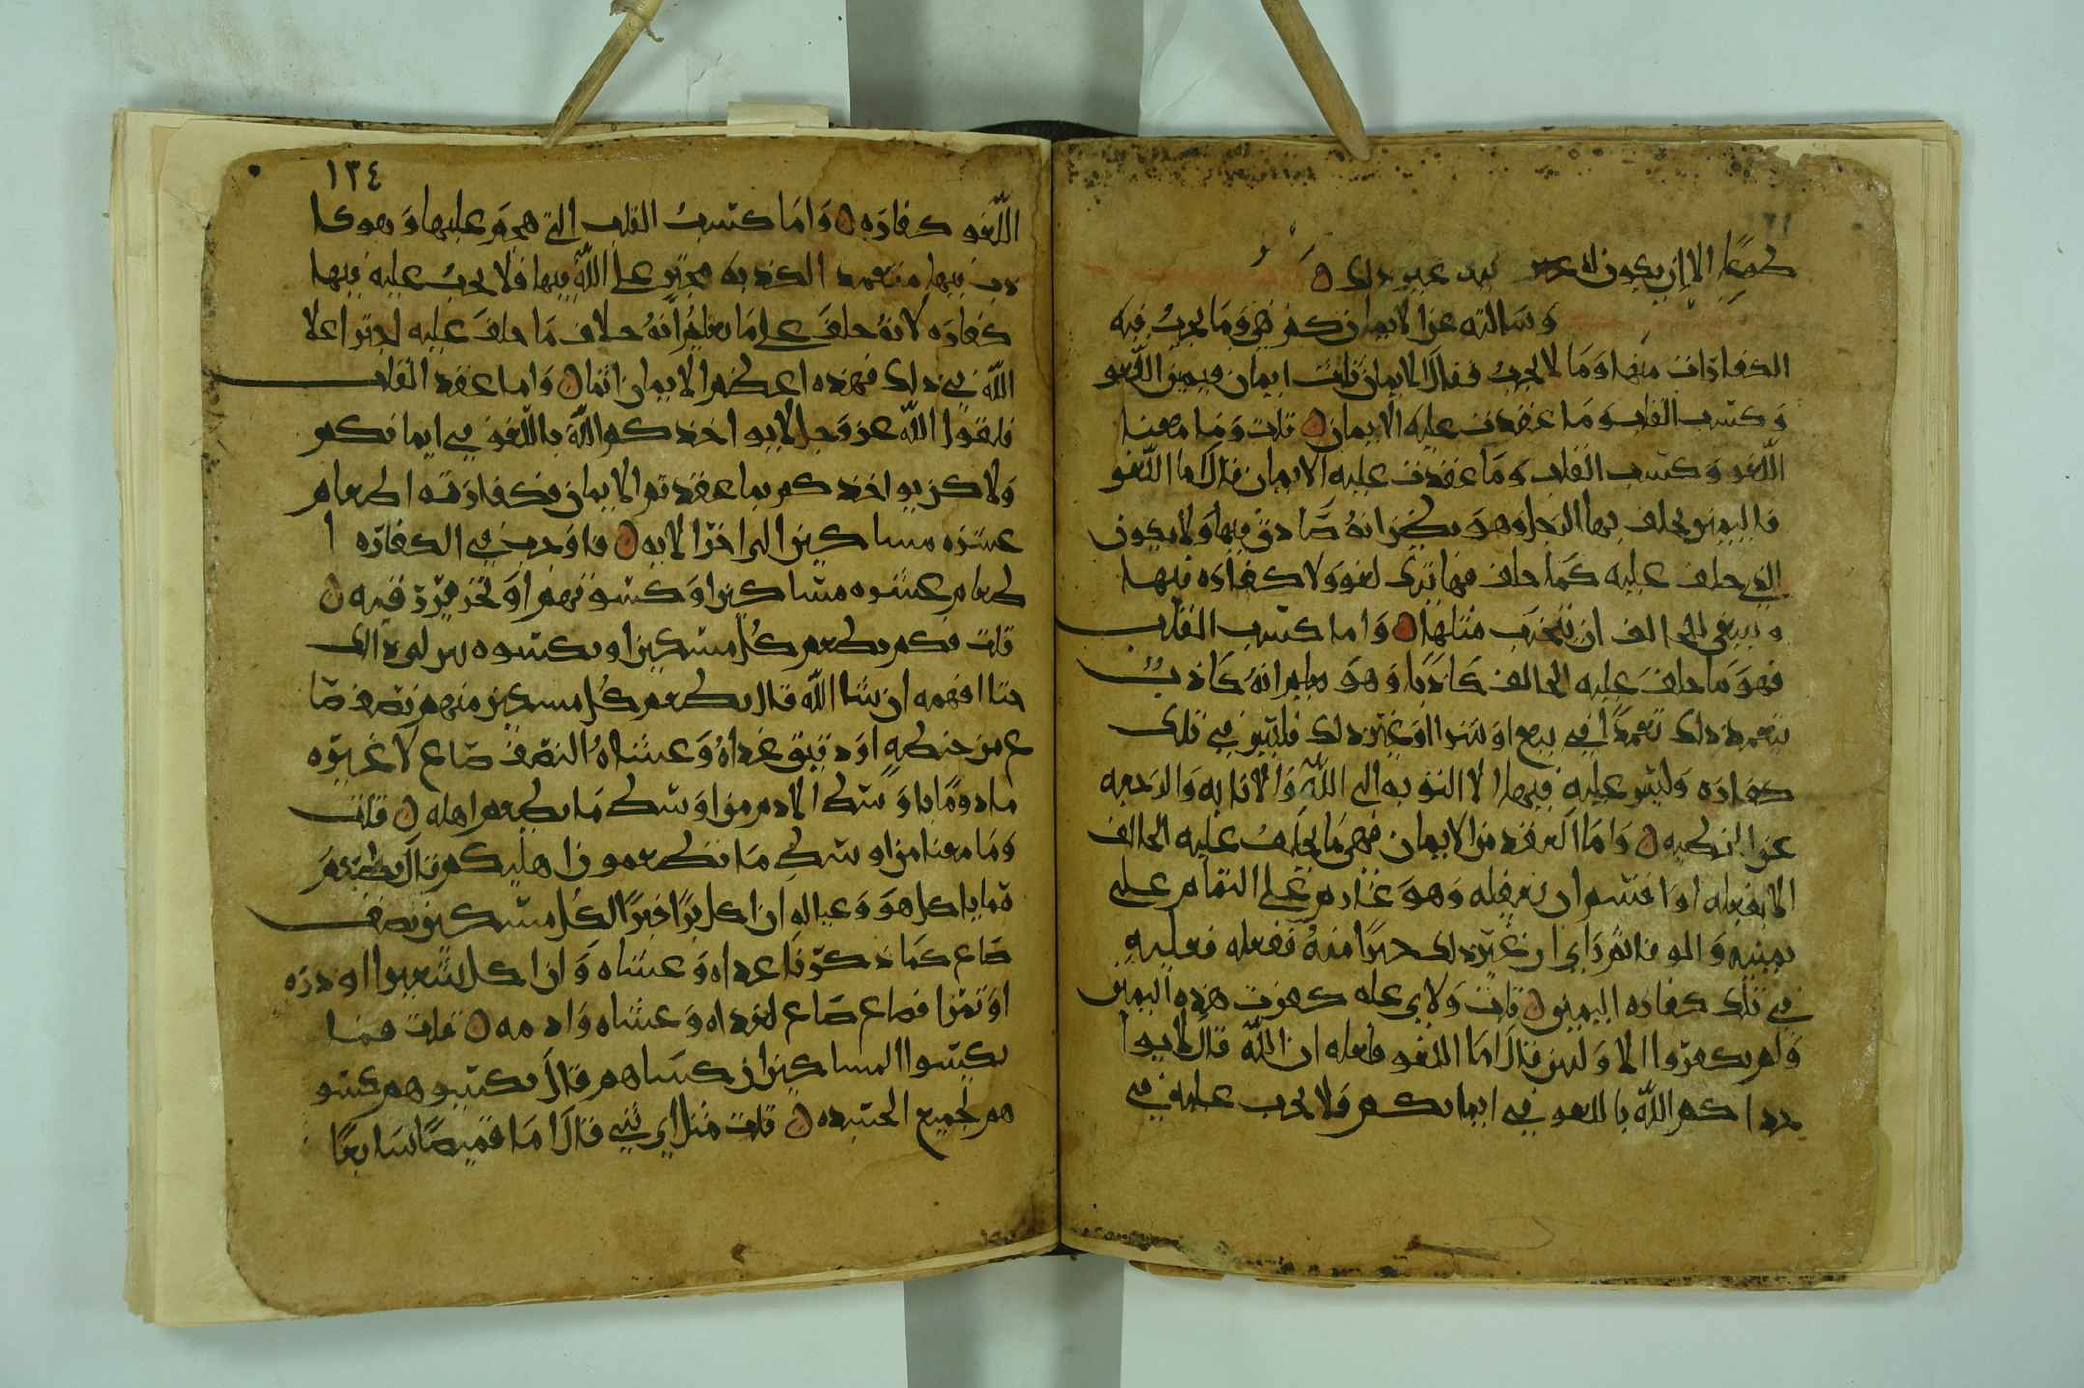 طمعا الا ان يكون له عند غير ذلك
وسالته عن الايمان كم هي وما يجب فيه
الكفارات منها وما لا يجب فقال الايمان ثلاث ايمان فيمين اللغو
وكسب القلب وما عقدت عليه الايمان قلت وما معنا
اللغو وكسب القلب وما عقدت عليه الايمان قال اما اللغو
فاليمين يحلف بها الرجل وهو يظن انه صادق فيها ولا يكون
الذي حلف عليه كما حلف فيها ترى لغو ولا كفاره فيها
وينبغي للحالف ان يتجنب مثلها واما كسب القلب
فهو ما حلف عليه الحالف كاذبا وهو يعلم انه كاذب
يتعمد ذلك تعمدا في بيع او شرا او غير ذلك فليس في تلك
كفاره وليس عليه فيها الا التوبه الى الله والانابه والرجعه
عن الخطيه واما العقد من الايمان فهي ما يحلف عليه الحالف
الا يفعله او اقسم ان يفعله وهو عازم على التمام على
يمينه والوفا ثم راى ان غير ذلك خيرا منه ففعله فعليه
في تلك كفاره اليمين قلت ولاي عله كفرت هذه اليمين
ولم يكفروا الاولين قال اما اللغو فلعله ان الله قال لا يوا
خذاكم الله باللغو في ايمانكم فلا يجب عليه في
١٣٤
اللغو كفاره واما كسب القلب التي هجم عليها وهو كا
ذب فيها متعمد الكذبه مجتر على الله فيها فلا يجب عليه فيها
كفاره لانه حلف على ما يعلم انه خلاف ما حلف عليه اجترا على
الله في ذلك فهذه اعظم الايمان اثما واما عقد القلب
فلقول الله عز وجل لا يواخذكم الله باللغو في ايمانكم
ولاكن يواخذكم بما عقدتم الايمان فكفارته اطعام
عشره مساكين الى اخر الايه فاوجب في الكفاره ا
طعام عشره مساكين او كسوتهم او تحرير رقبه
قلت فكم يطعم كل مسكين او يكسوه بين لي ذالك
حتا افهمه ان شا الله قال يطعم كل مسكين منهم نصف صا
ع من حنطه او دقيق غداه وعشاه النصف صاع لا غيره
مادوما باوسط الادم من اوسط ما يطعم اهله قلت
وما معنا من اوسط ما تطعمون اهليكم قال يطعم
مما ياكل هو وعياله ان اكل برا فبرا لكل مسكين نصف
صاع كما ذكرنا غداه وعشاه وان اكل شعيرا او ذره
او تمرا فصاع صاع لغداه وعشاه وادمه قلت فما
يكسوا المساكين ان كساهم قال يكسيوهم كسو
هم لجميع الجسده قلت مثل اي شي قال اما قميصا سابغا